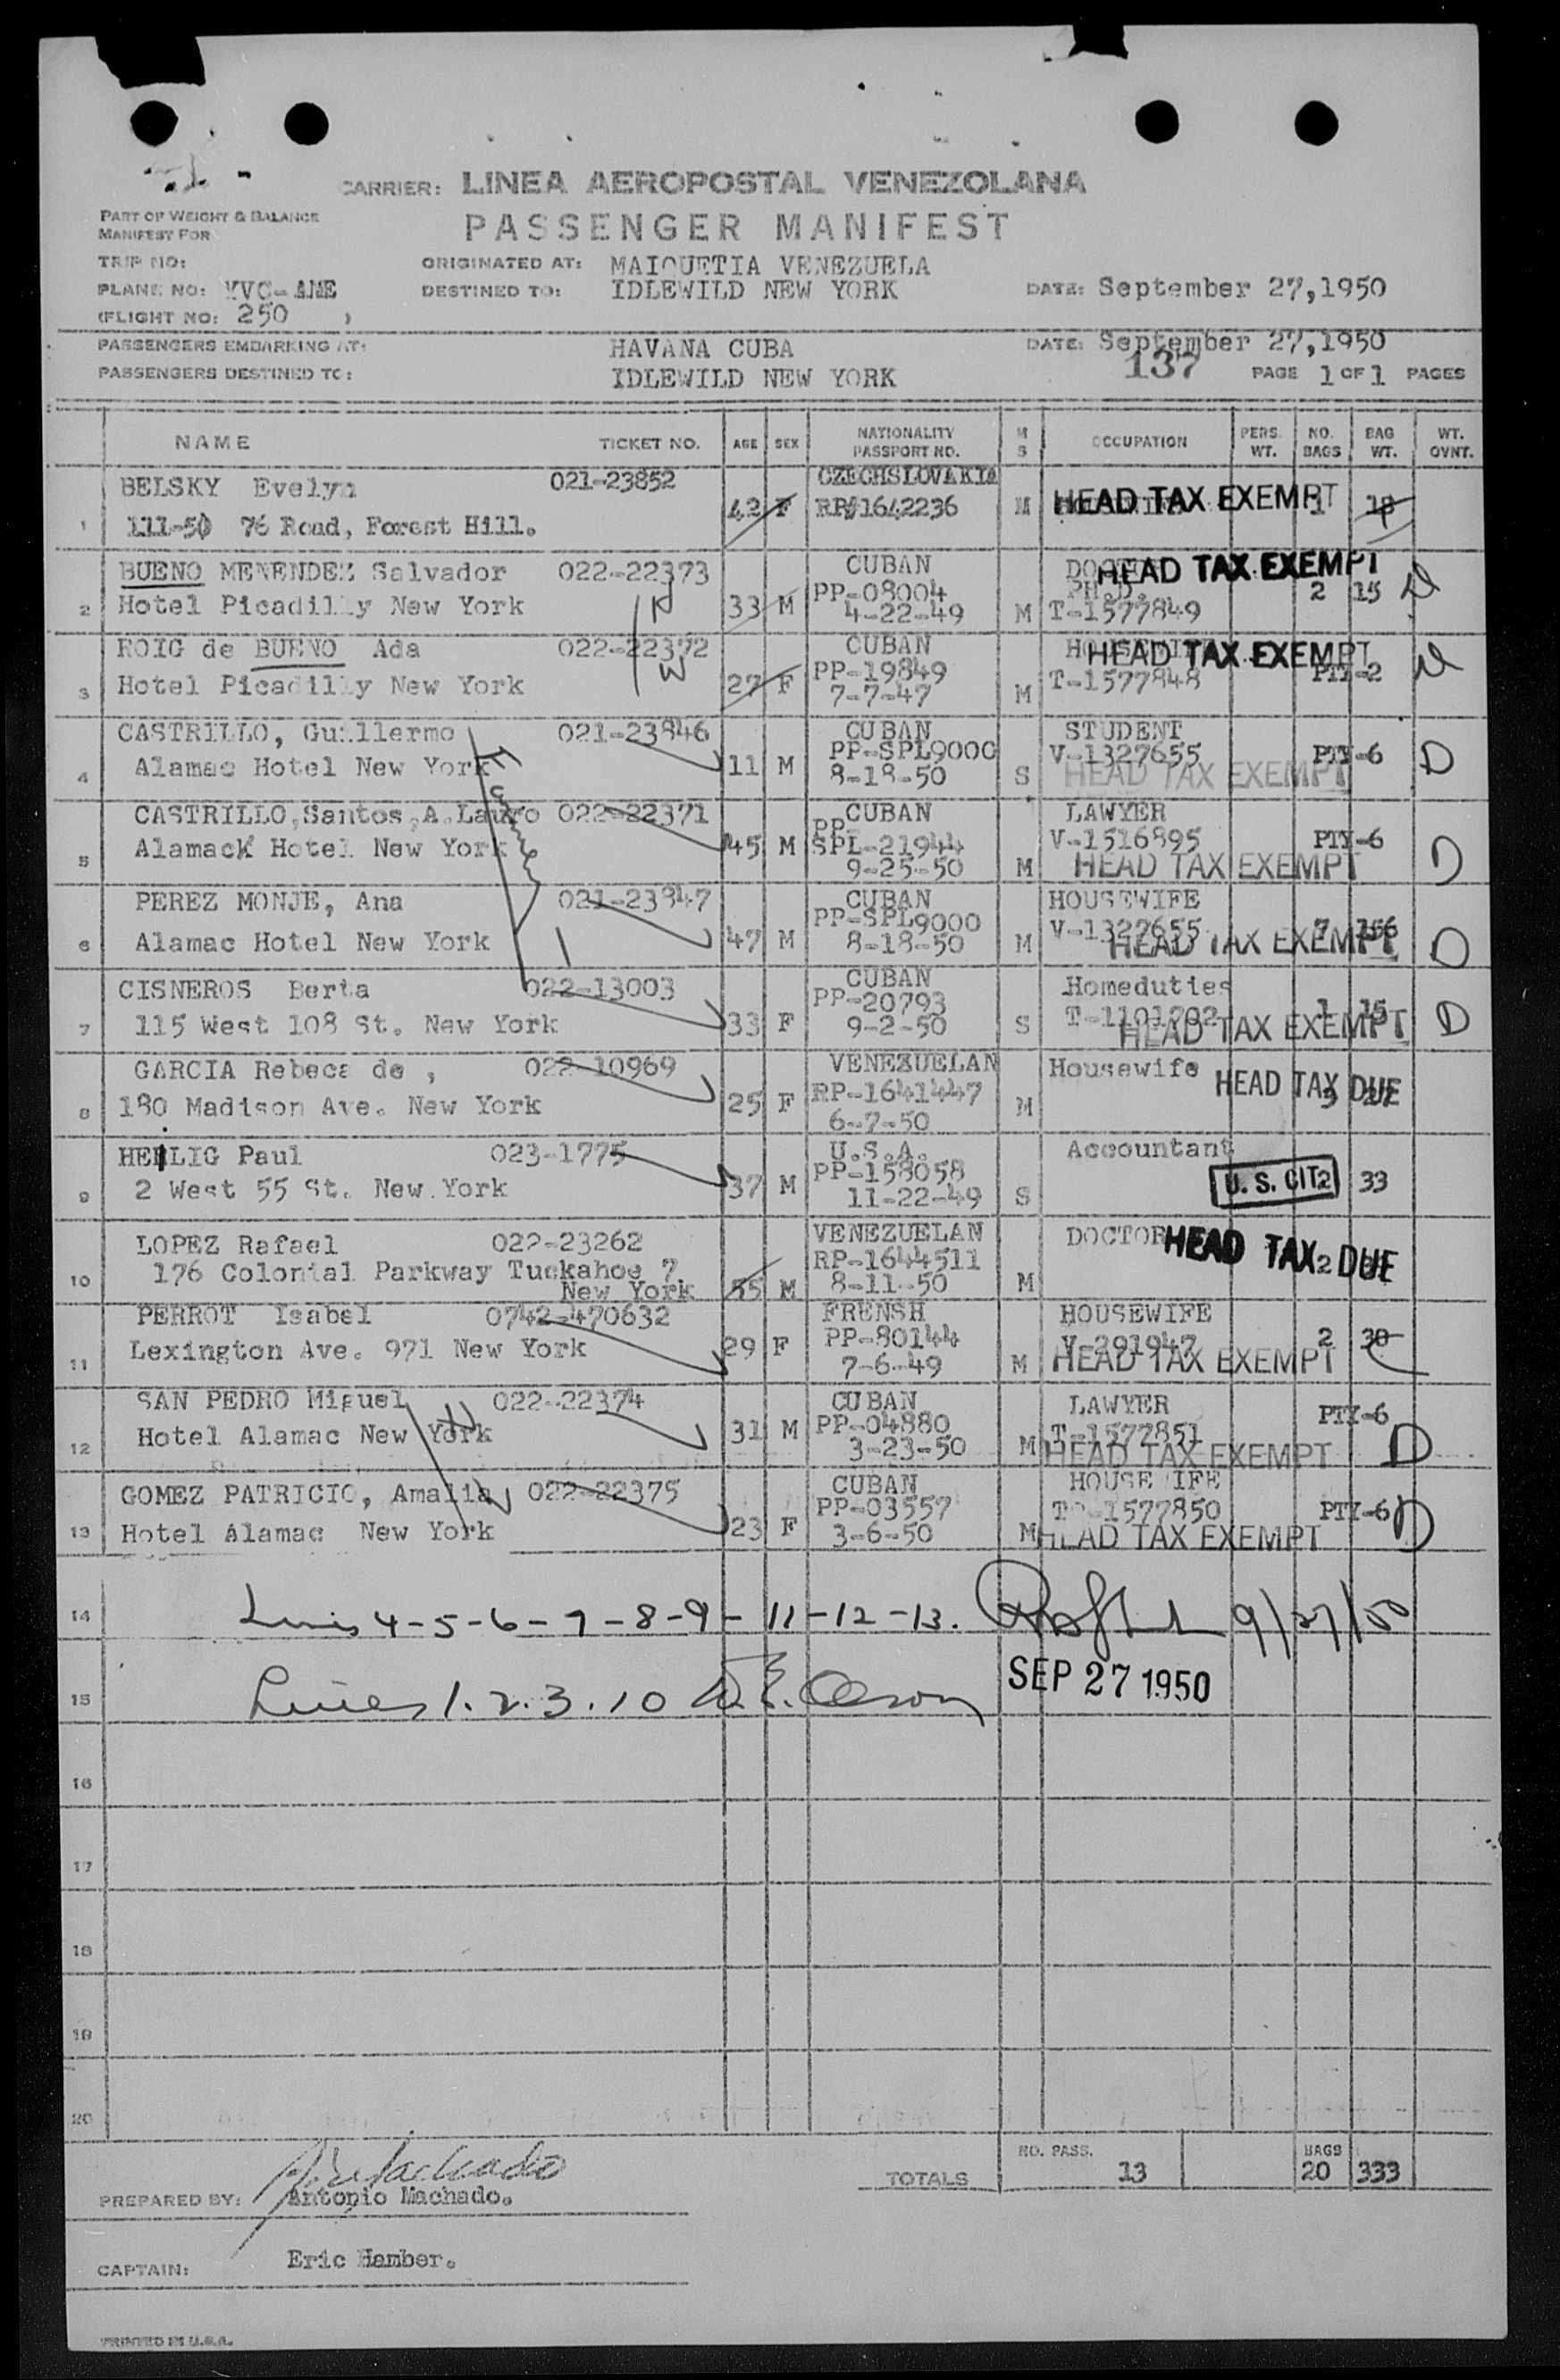 CARRIER: LINEA AEROPOSTAL VENEZOLANA
PART OF WEIGHT & BALANCE
MANIFEST FOR
PASSENGER MANIFEST
TRIP NO:
ORIGINATED AT: MAIQUETIA VENEZUELA
PLANE NO: YVC-AME
DESTINED TO: IDLEWILD NEW YORK
DATE: September 27,1950
(FLIGHT NO: 250 )
PASSENGERS EMBARKING AT: HAVANA CUBA
DATE: September 27,1950
137
PASSENGERS DESTINED TO: IDLEWILD NEW YORK
PAGE 1 OF 1 PAGES
NAME TICKET NO. AGE SEX NATIONALITY PASSPORT NO. M S OCCUPATION PERS. WT. NO. BAGS BAG WT. WT. OVNT.
BELSKY Evelyn 021-23852 CZECHSLOVAKIA
1 111-50 76 Road, Forest Hill. 42 F RP#1642236 M HEAD TAX EXEMPT 1 18
BUENO MENENDEZ Salvador 022-22373 CUBAN HEAD TAX EXEMPT
PP-08004 PH.D. 2 15
2 Hotel Picadilly New York 33 M 4-22-49 M T-1577849
ROIG de BUENO Ada 022-22372 CUBAN HOUSEWIFE HEAD TAX EXEMPT
PP-19849 T-1577848 PTY-2
3 Hotel Picadilly New York 27 F 7-7-47 M
CASTRILLO, Guillermo 021-23846 CUBAN STUDENT
PP-SPL9000 V-1327655 PTY-6 D
4 Alamac Hotel New York 11 M 8-18-50 S HEAD TAX EXEMPT
CASTRILLO,Santos,A.Lauro 022-22371 CUBAN LAWYER
PP- V-1516895 PTY-6
5 Alamack Hotel New York 45 M SPL-21944 D
9-25-50 M HEAD TAX EXEMPT
PEREZ MONJE, Ana 021-23847 CUBAN HOUSEWIFE
PP-SPL9000 V-1327655 7 156
6 Alamac Hotel New York 47 M 8-18-50 M HEAD TAX EXEMPT D
CISNEROS Berta 022-13003 CUBAN Homeduties
PP-20793 1 15
7 115 West 108 St. New York 33 F 9-2-50 S HEAD TAX EXEMPT D
GARCIA Rebeca de , 022-10969 VENEZUELAN Housewife
HEAD TAX DUE
8 180 Madison Ave. New York 25 F RP-1641447 M
6-7-50
HEILIG Paul 023-1775 U.S.A. Accountant
PP-158058
9 2 West 55 St. New York 37 M 11-22-49 S U. S. CIT 2 33
LOPEZ Rafael 022-23262 VENEZUELAN DOCTOR HEAD TAX DUE
176 Colonial Parkway Tuckahoe 7 RP-1644511 2
10 New York 55 M 8-11-50 M
PERROT Isabel 0742-470632 FRENSH HOUSEWIFE
PP-80144 V-291947 2 30
11 Lexington Ave. 971 New York 29 F 7-6-49 M HEAD TAX EXEMPT
SAN PEDRO Miguel 022-22374 CUBAN LAWYER
PP-04880 T-1577851 PTY-6
12 Hotel Alamac New York 31 M 3-23-50 M HEAD TAX EXEMPT D
GOMEZ PATRICIO, Amalia 022-22375 CUBAN HOUSEWIFE
PP-03557 T-1577850 PTY-6 D
13 Hotel Alamac New York 23 F 3-6-50 M HEAD TAX EXEMPT
14 Lines 4-5-6-7-8-9-11-12-13. 9/27/50
15 Lines 1.2.3.10 SEP 27 1950
16
17
18
19
20
TOTALS NO. PASS. 13 BAGS 20 333
PREPARED BY: Antonio Machado.
CAPTAIN: Eric Hamber.
PRINTED IN U.S.A.